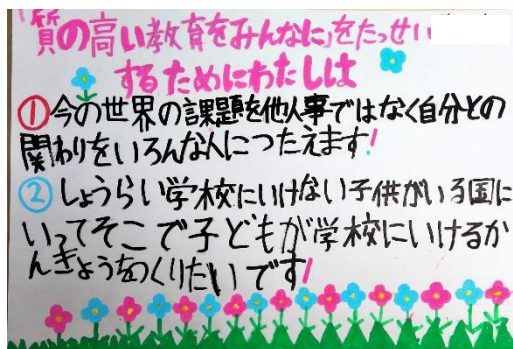 「質の高い教育をみんなに」をたっせい
するためにわたしは
①今の世界の課題を他人事ではなく自分との
関わりをいろんな人につたえます!
②しょうらい学校にいけない子供がいる国に
いってそこで子どもが学校にいけるか
んきょうをつくりたいです!